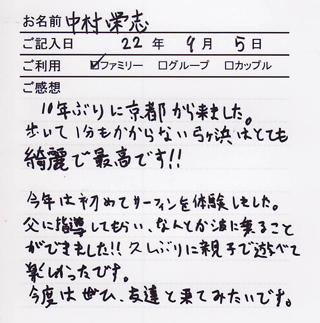 お名前 中村栄志
ご記入日 22年 9月 5日
ご利用 ☑ファミリー □グループ □カップル
ご感想
10年ぶりに京都から来ました。
歩いて1分もかからない弓ヶ浜はとても
綺麗で最高です!!
今年は初めてサーフィンを体験しました。
父に指導してもらい、なんとか波に乗ること
ができました!!久しぶりに親子で遊べて
楽しかったです。
今度はぜひ、友達と来てみたいです。